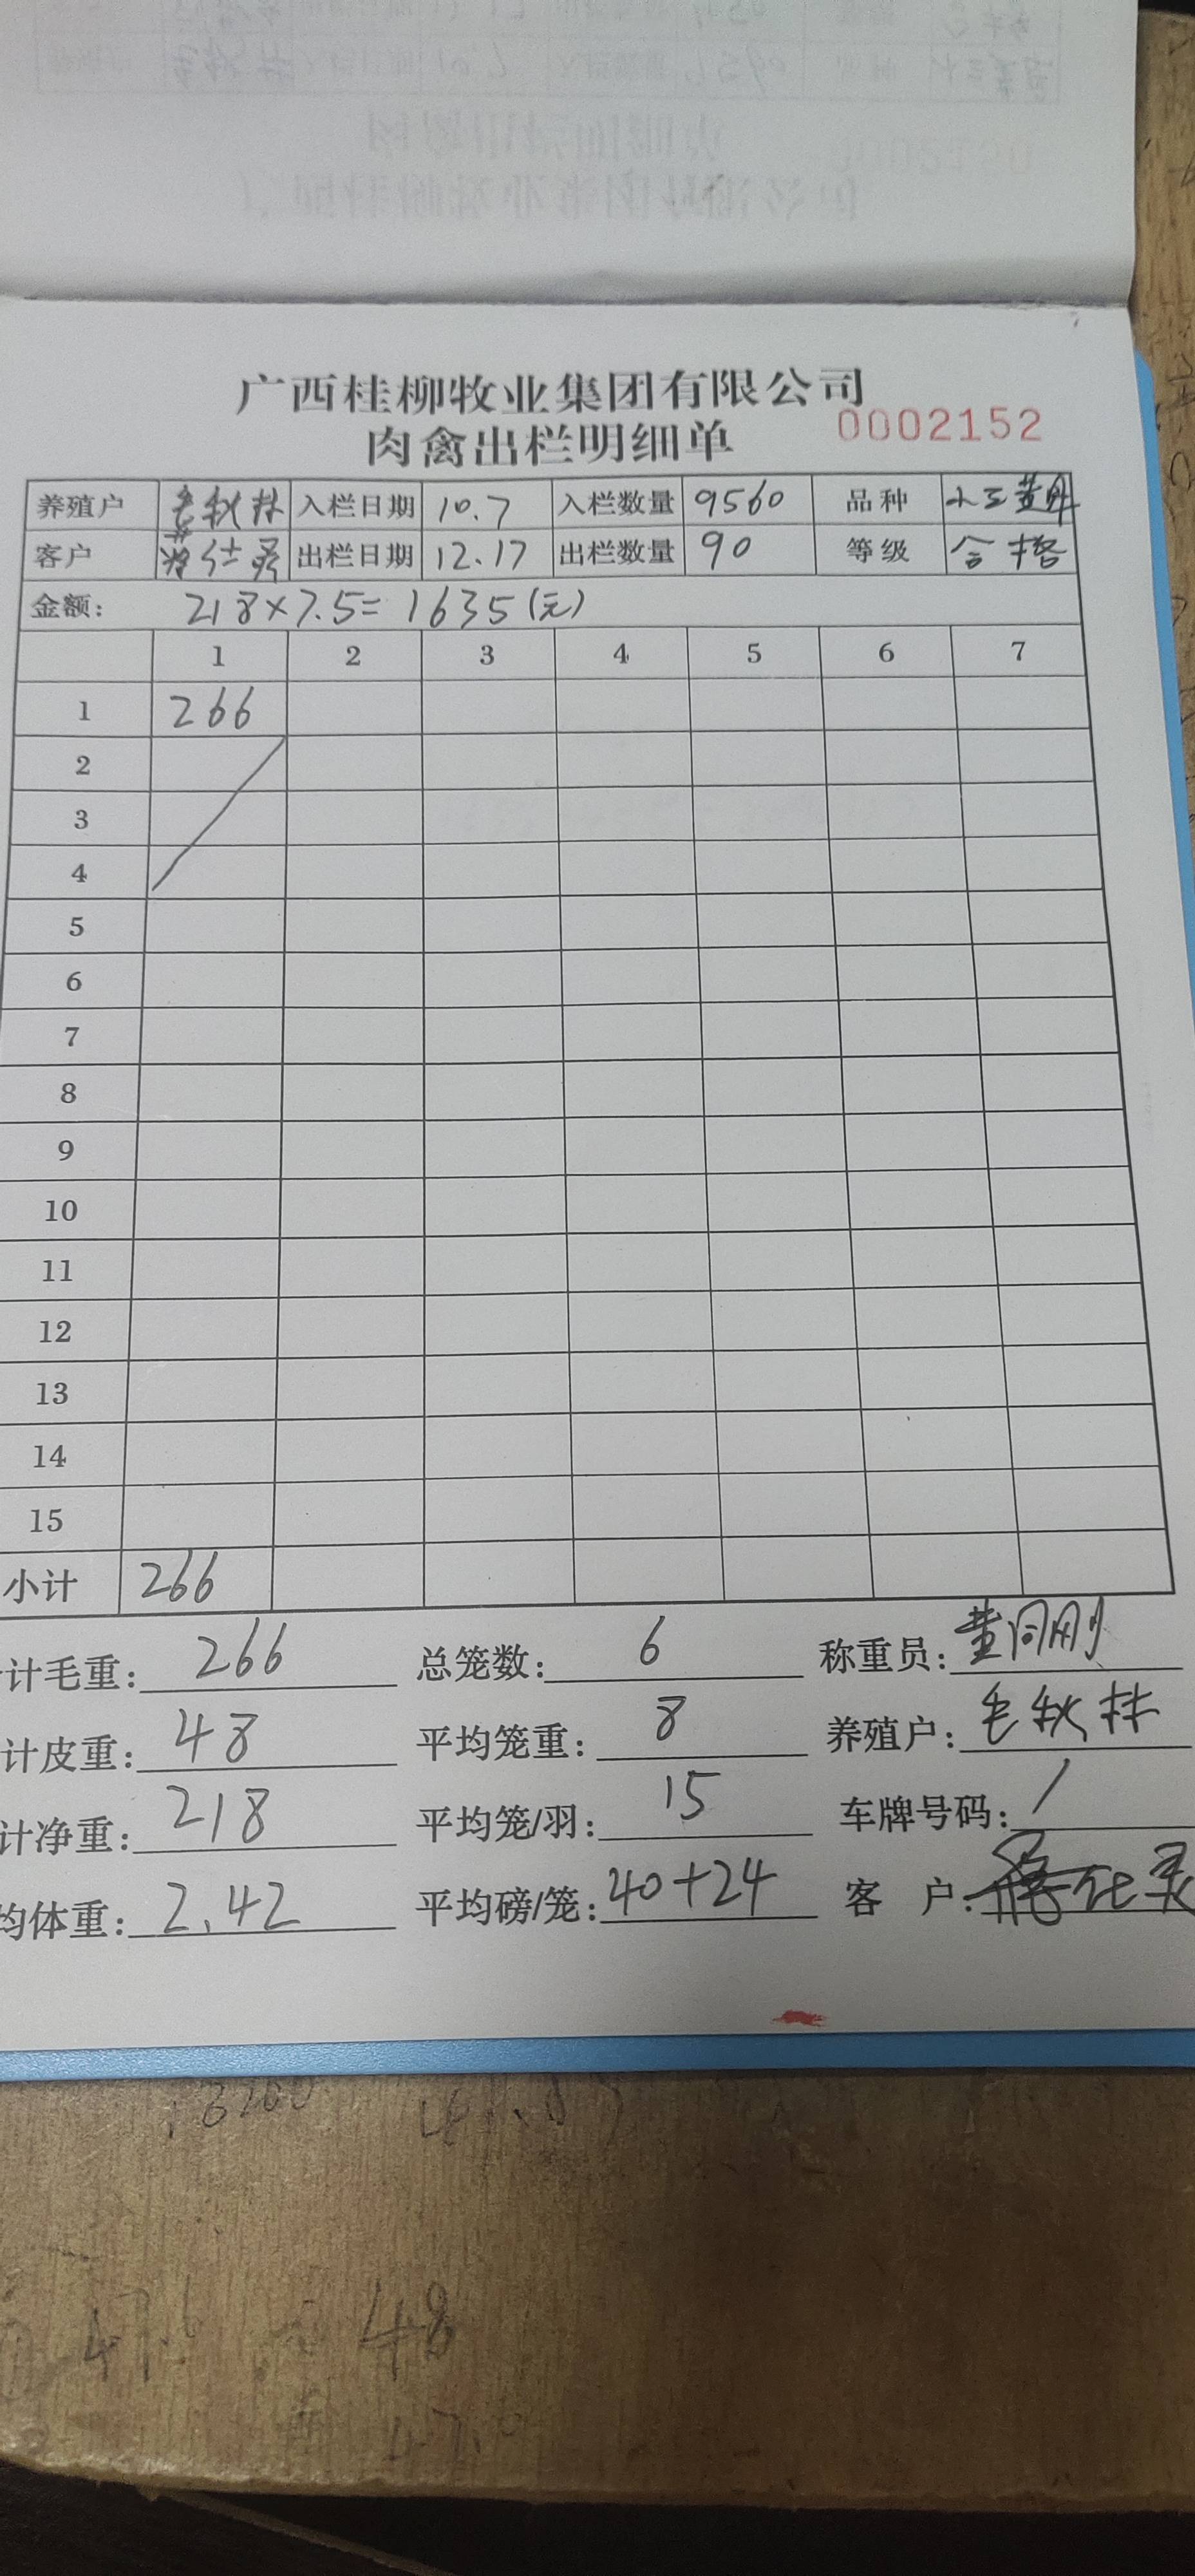 广西桂柳牧业集团有限公司
肉禽出栏明细单 0002152
养殖户 毛秋林 入栏日期 10.7 入栏数量 9560 品种
客户 出栏日期 12.17 出栏数量 90 等级 合格
金额: 218×7.5=1635(元)
1 2 3 4 5 6 7
1 266
2
3
4
5
6
7
8
9
10
11
12
13
14
15
小计 266
计毛重: 266 总笼数: 6 称重员:
计皮重: 48 平均笼重: 8 养殖户: 毛秋林
计净重: 218 平均笼/羽: 15 车牌号码: /
均体重: 2.42 平均磅/笼: 40+24 客户:
48